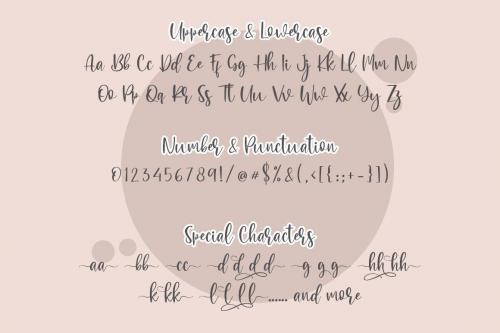 Uppercase & Lowercase
Aa Bb Cc Dd Ee Ff Gg Hh Ii Jj Kk Ll Mm Nn
Oo Pp Qq Rr Ss Tt Uu Vv Ww Xx Yy Zz
Number & Punctuation
0123456789!/@#$%&(,<[{:;+-}])
Special Characters
aa bb cc d d d d g g g hh hh
k kk l l l l ...... and more